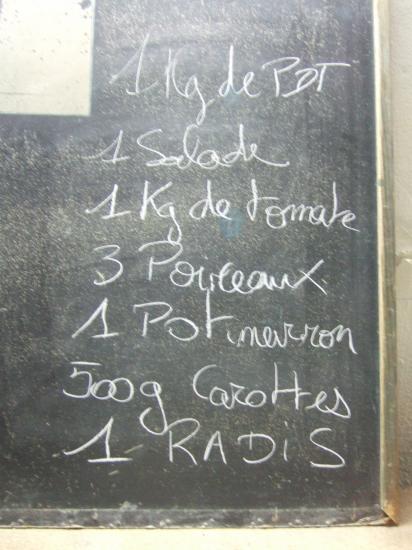 1 Kg de PDT
1 Salade
1 Kg de tomate
3 Poireaux
1 Potimarron
500g Carottes
1 RADIS